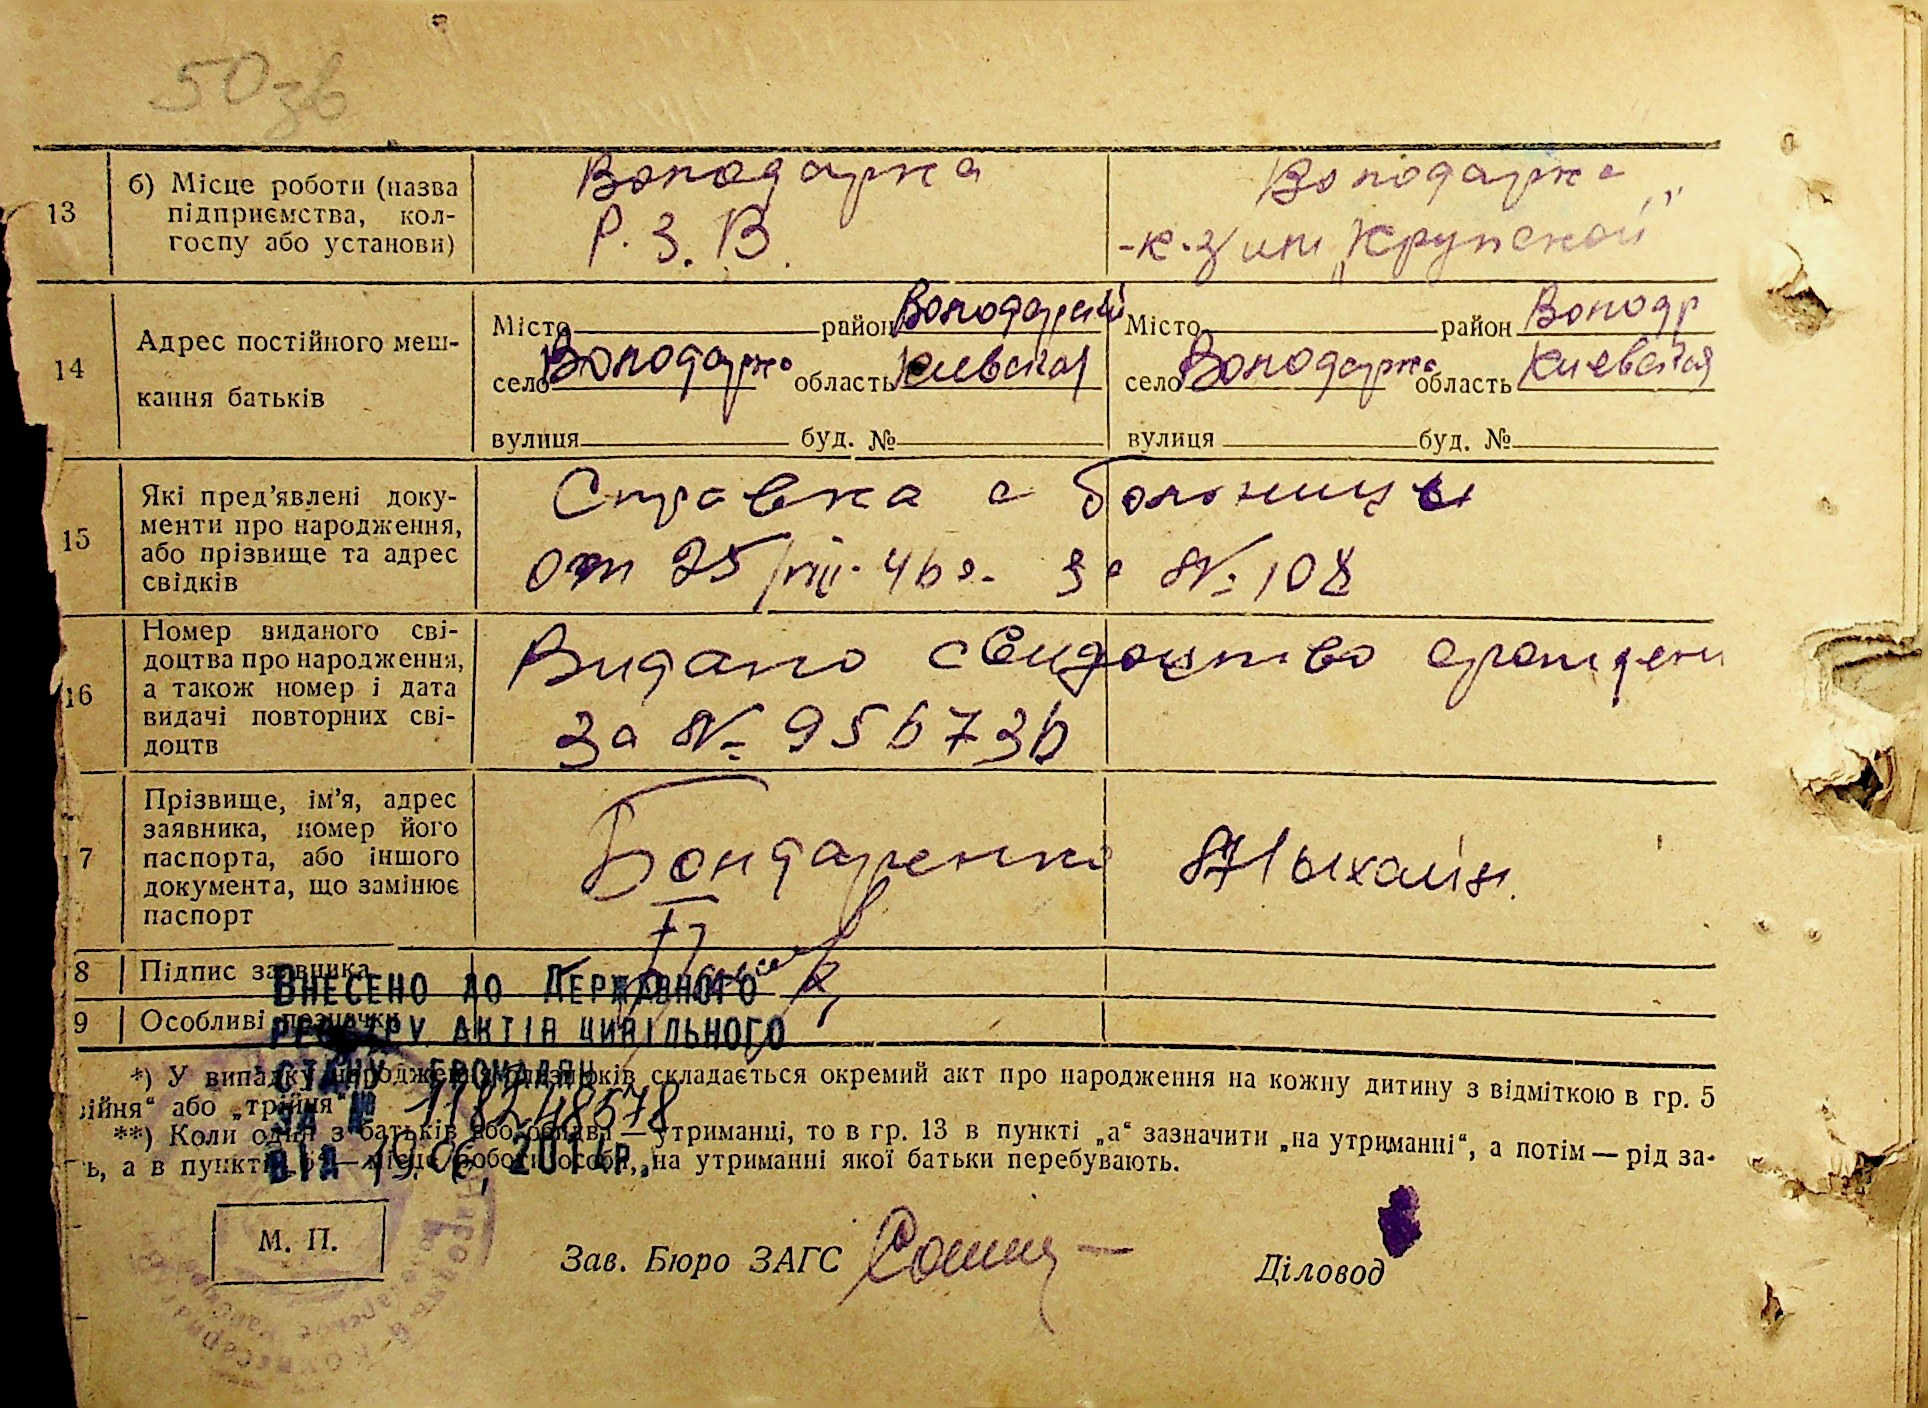 50зв
13
б) Місце роботи (назва
підприємства, кол-
госпу або установи)
Володарка
Р. З. В.
Володарка
-к-з им „Крупской"
14
Адрес постійного меш-
кання батьків
Місто район Володарский
село Володарка область Киевская
вулиця буд. №
Місто район Володар
село Володарка область Киевская
вулиця буд. №
15
Які пред'явлені доку-
менти про народження,
або прізвище та адрес
свідків
Справка с больницы
от 25/VIII-46г. за №108
16
Номер виданого сві-
доцтва про народження,
а також номер і дата
видачі повторних сві-
доцтв
Видано свидоцтво
за № 956736
7
Прізвище, ім'я, адрес
заявника, номер його
паспорта, або іншого
документа, що замінює
паспорт
Бондаренко
8
Підпис заявника
9
Особливі позначки
Внесено до Державного
реєстру актів цивільного
стану громадян
за № 118248578
від 19.06, 2014р.
*) У випадку народження близнюків, складається окремий акт про народження на кожну дитину з відміткою в гр. 5
ійня" або „трійня"
**) Коли один з батьків або обидва — утриманці, то в гр. 13 в пункті „а" зазначити „на утриманні", а потім — рід за-
ь, а в пункті „б" — місце роботи особи, на утриманні якої батьки перебувають.
М. П.
Зав. Бюро ЗАГС
Діловод